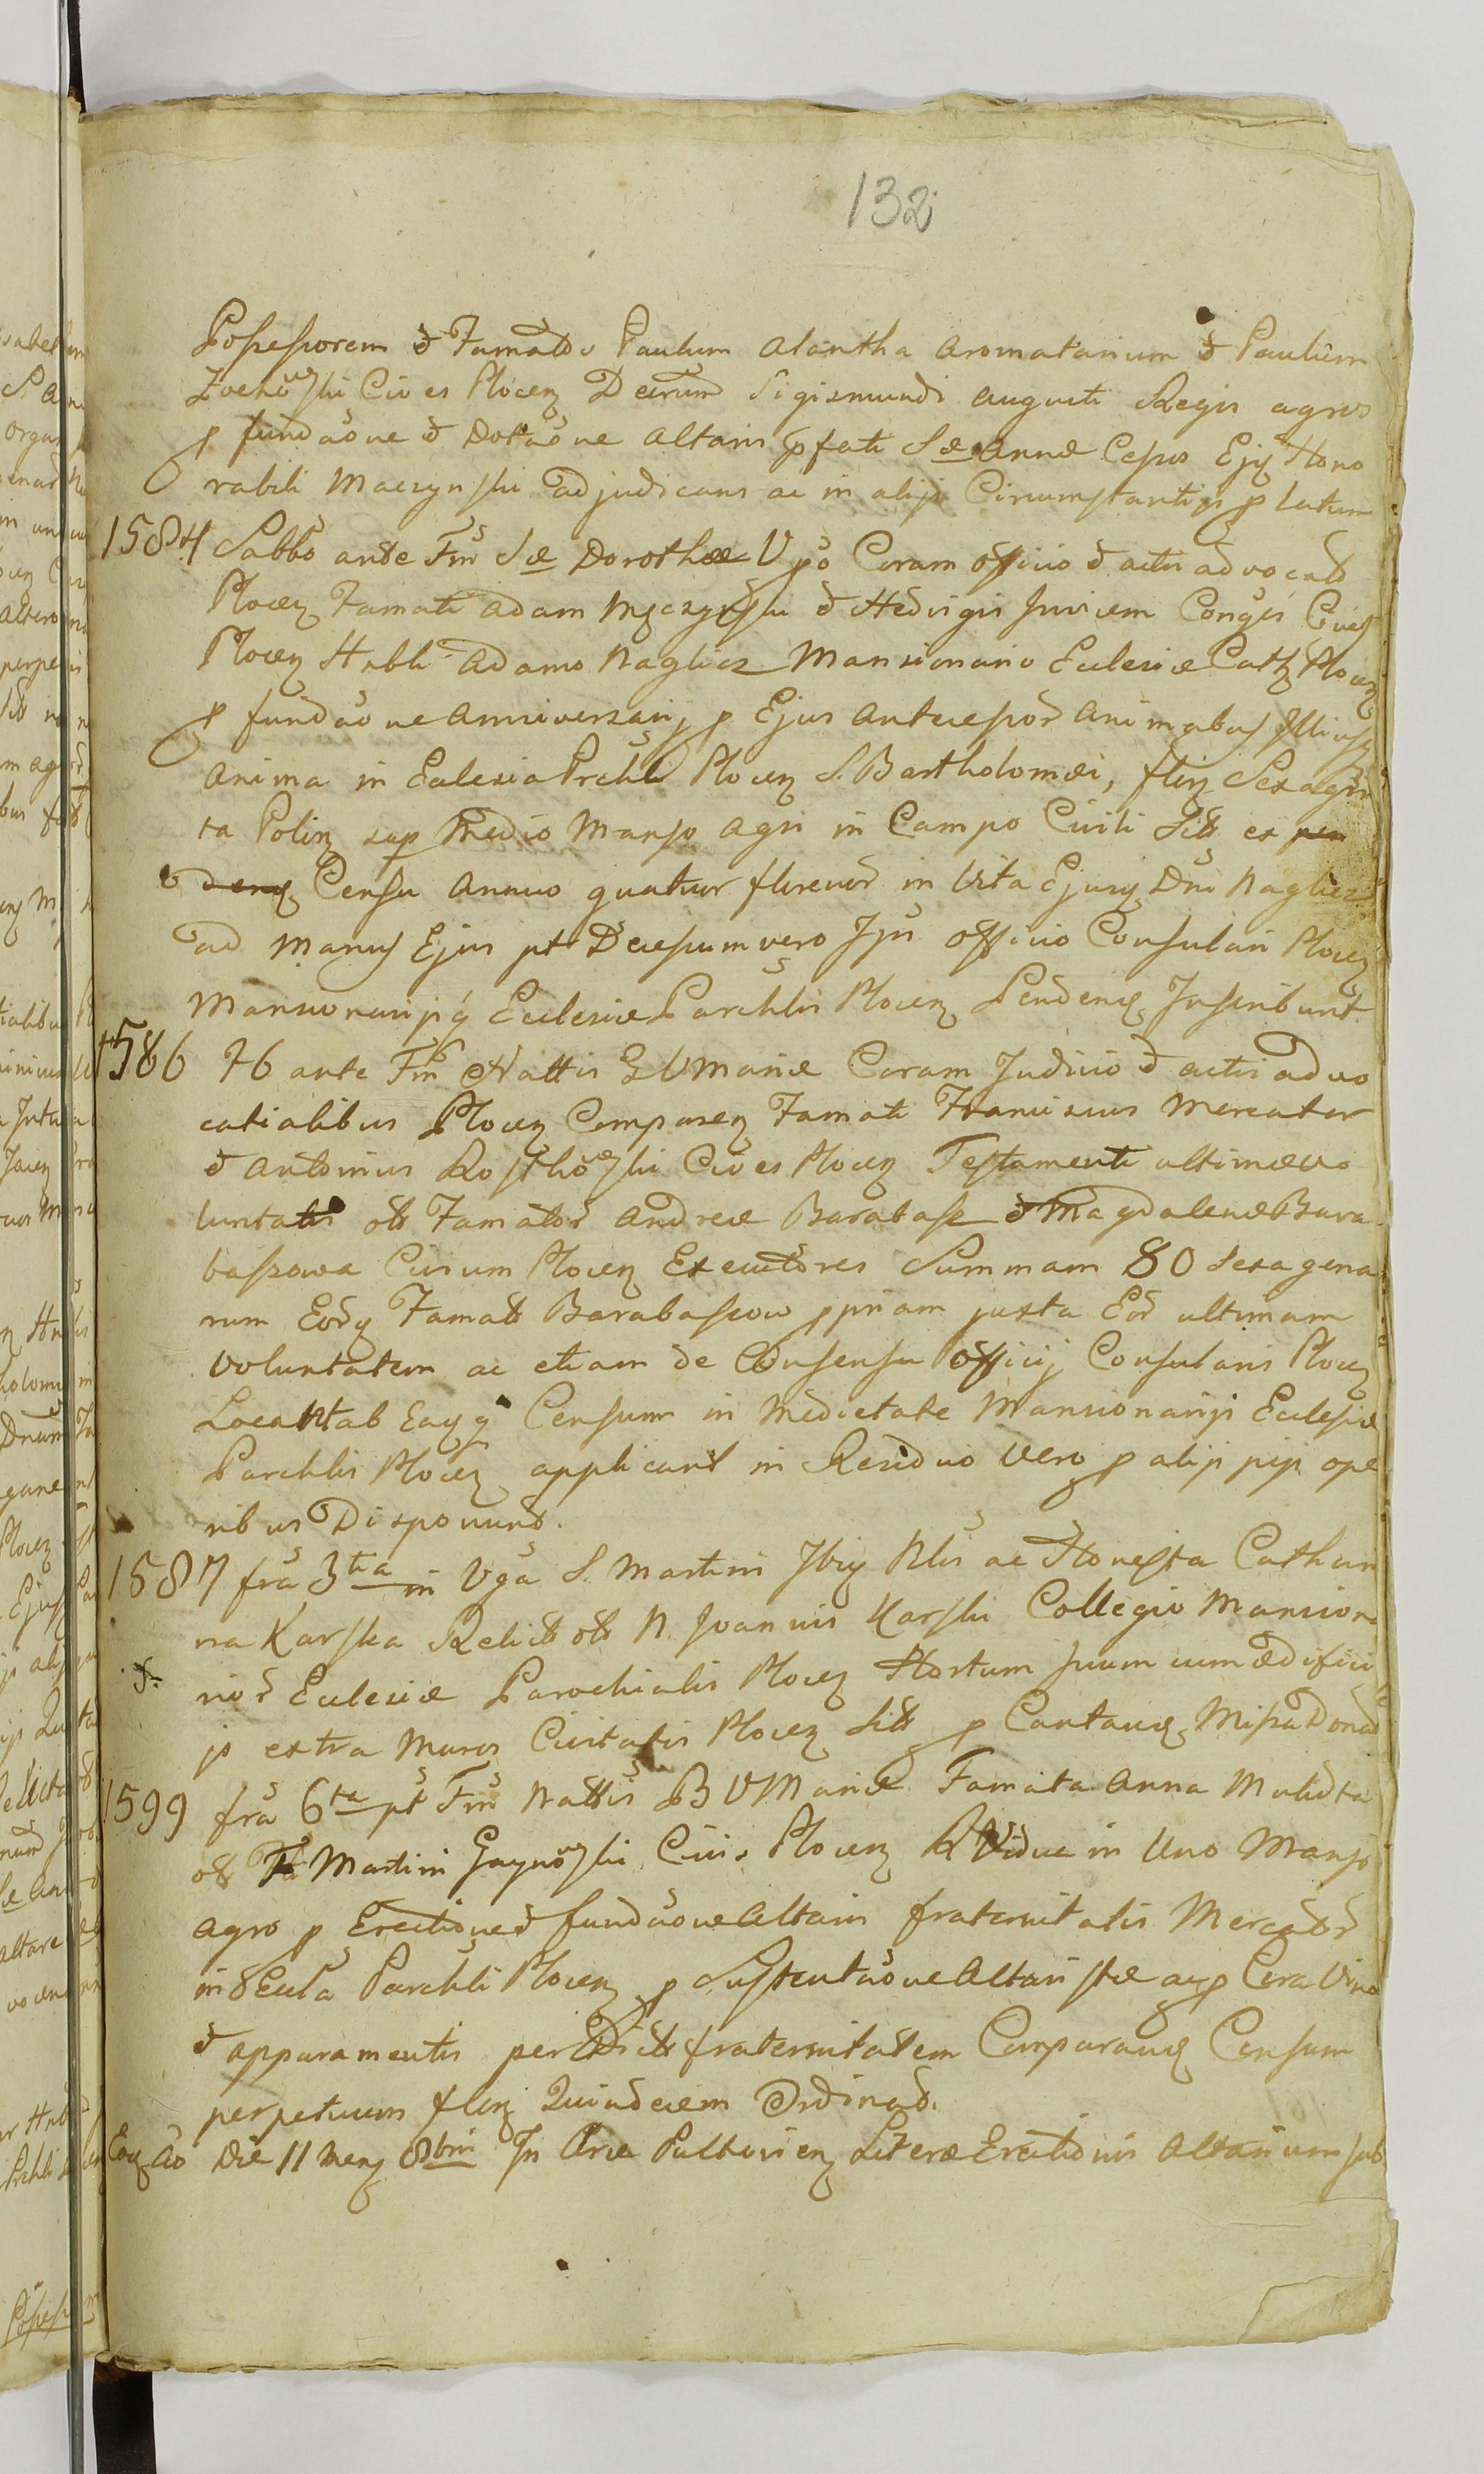 132
Possessorem & Famatos Paulum Alantha Aromatarium & Paulum
Cives Plocen Decretum Sigismundi Augusti Regis agros
p fundaõne & Dotaõne Altaris pfati Sæ Annæ Cesso Ejq Hono
rabili Maczynski adjudicans ac in alijs Circumstantijs p latum
1584 Sabbo ante Fm Sæ Dorotheæ V Coram officio & actis advocat
Plocen Famati Adam & Hedvigis invicem Conges Cives
Plocen Hrbli Adamo Naglicz Mansionario Ecclesiæ Cath Plocen
p fundaõne Anniversarij p Ejus Antecessor Animabus Illiusq
Anima in Ecclesia Prchli Plocen S. Bartholomæi, flen Sexagin
ta Polin sup Medio Manso Agri in Campo Civili Sit ex
Censu Annuo quatuor florenor in Vita Ejusq Dni Naglicz
ad Manus Ejus pt Decessum vero Ips officio Consulari Plocen
Mansionarijsq Ecclesiæ Parchlis Plocen Pendens Inscribunt
1586 Hb ante Fm Nattis BVMariæ Coram Judicio & actis advo
catialibus Plocen Comparen Famati Franciscus Mercator
& Antonius Cives Plocen Testamenti ultimævo
luntatis ott Famator Andreæ Barabasz & Magdalenæ Bara
baszowa Civium Plocen Executores Summam 80 Sexagena
rum Eordq Famat Barabaszow ppriam juxta Eor ultimam
Voluntatem ac etiam de Consensu officij Consularis Plocen
Locant ab Eaqq Censum in Medietate Mansionarijs Ecclesiæ
Parchlis Plocen applicant in Residuo Vero p alijs pijs ope
ribus Disponunt.
1587 fra 3tia in Vga S. Martini Ibiq Nlis ac Honesta Cathari
na Karska Relicta ott N. Joannis Karski Collegio Mansiona
rior Ecclesiæ Parochialis Plocen Hortum suum cum ædificij
js extra Muros Civitatis Plocen Sit p Cantanda Missa Donat
1599 fra 6ta pt Fm Nattis BVMariæ Famata Anna Relicta
ott Martini Civis Plocen Vidua in Uno Manso
Agro p Erectione & fundaõne Altaris fraternitatis Mercator
in Eccla Parchli Plocen p Sustentaõne Altaristæ acp Cera Vino
& apparamentis per Dict fraternitatem Comparand Censum
perpetuum flen Quindecim Ordinat.
Eoq Ao Die 11 Mens 8bris In Arce Pultovien Literæ Erectionis Altarium sub